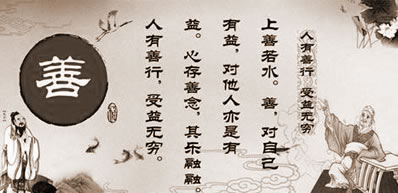 人有善行，受益无穷
上善若水。善，对自己
有益，对他人亦是有
益。心存善念，其乐融融。
人有善行，受益无穷。
善